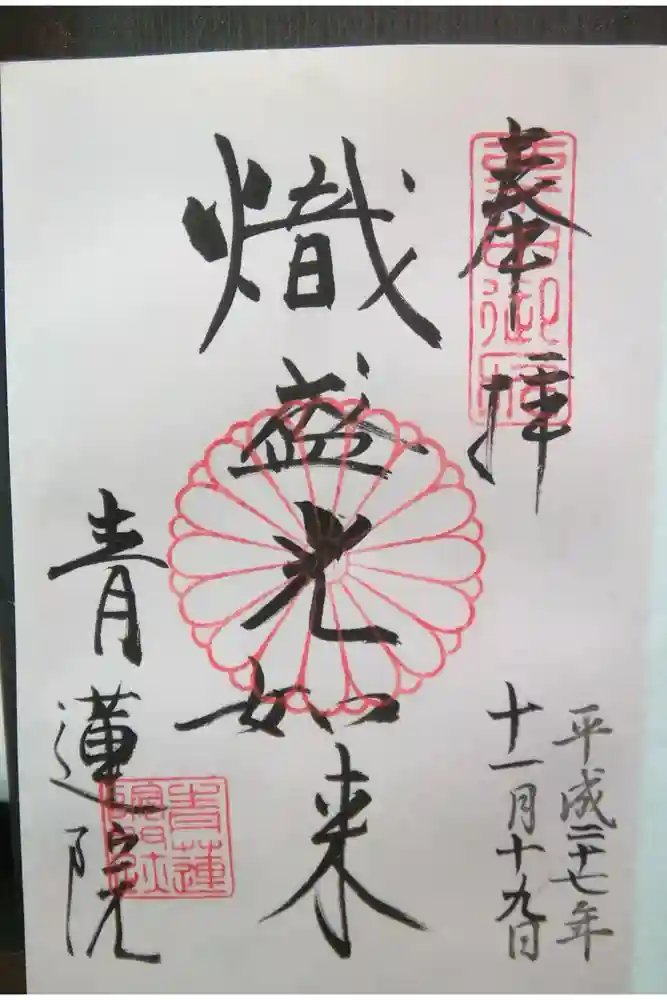 奉拝
平成二十七年
十一月十九日
熾盛光如来
青蓮院
粟田御所
青蓮院門跡